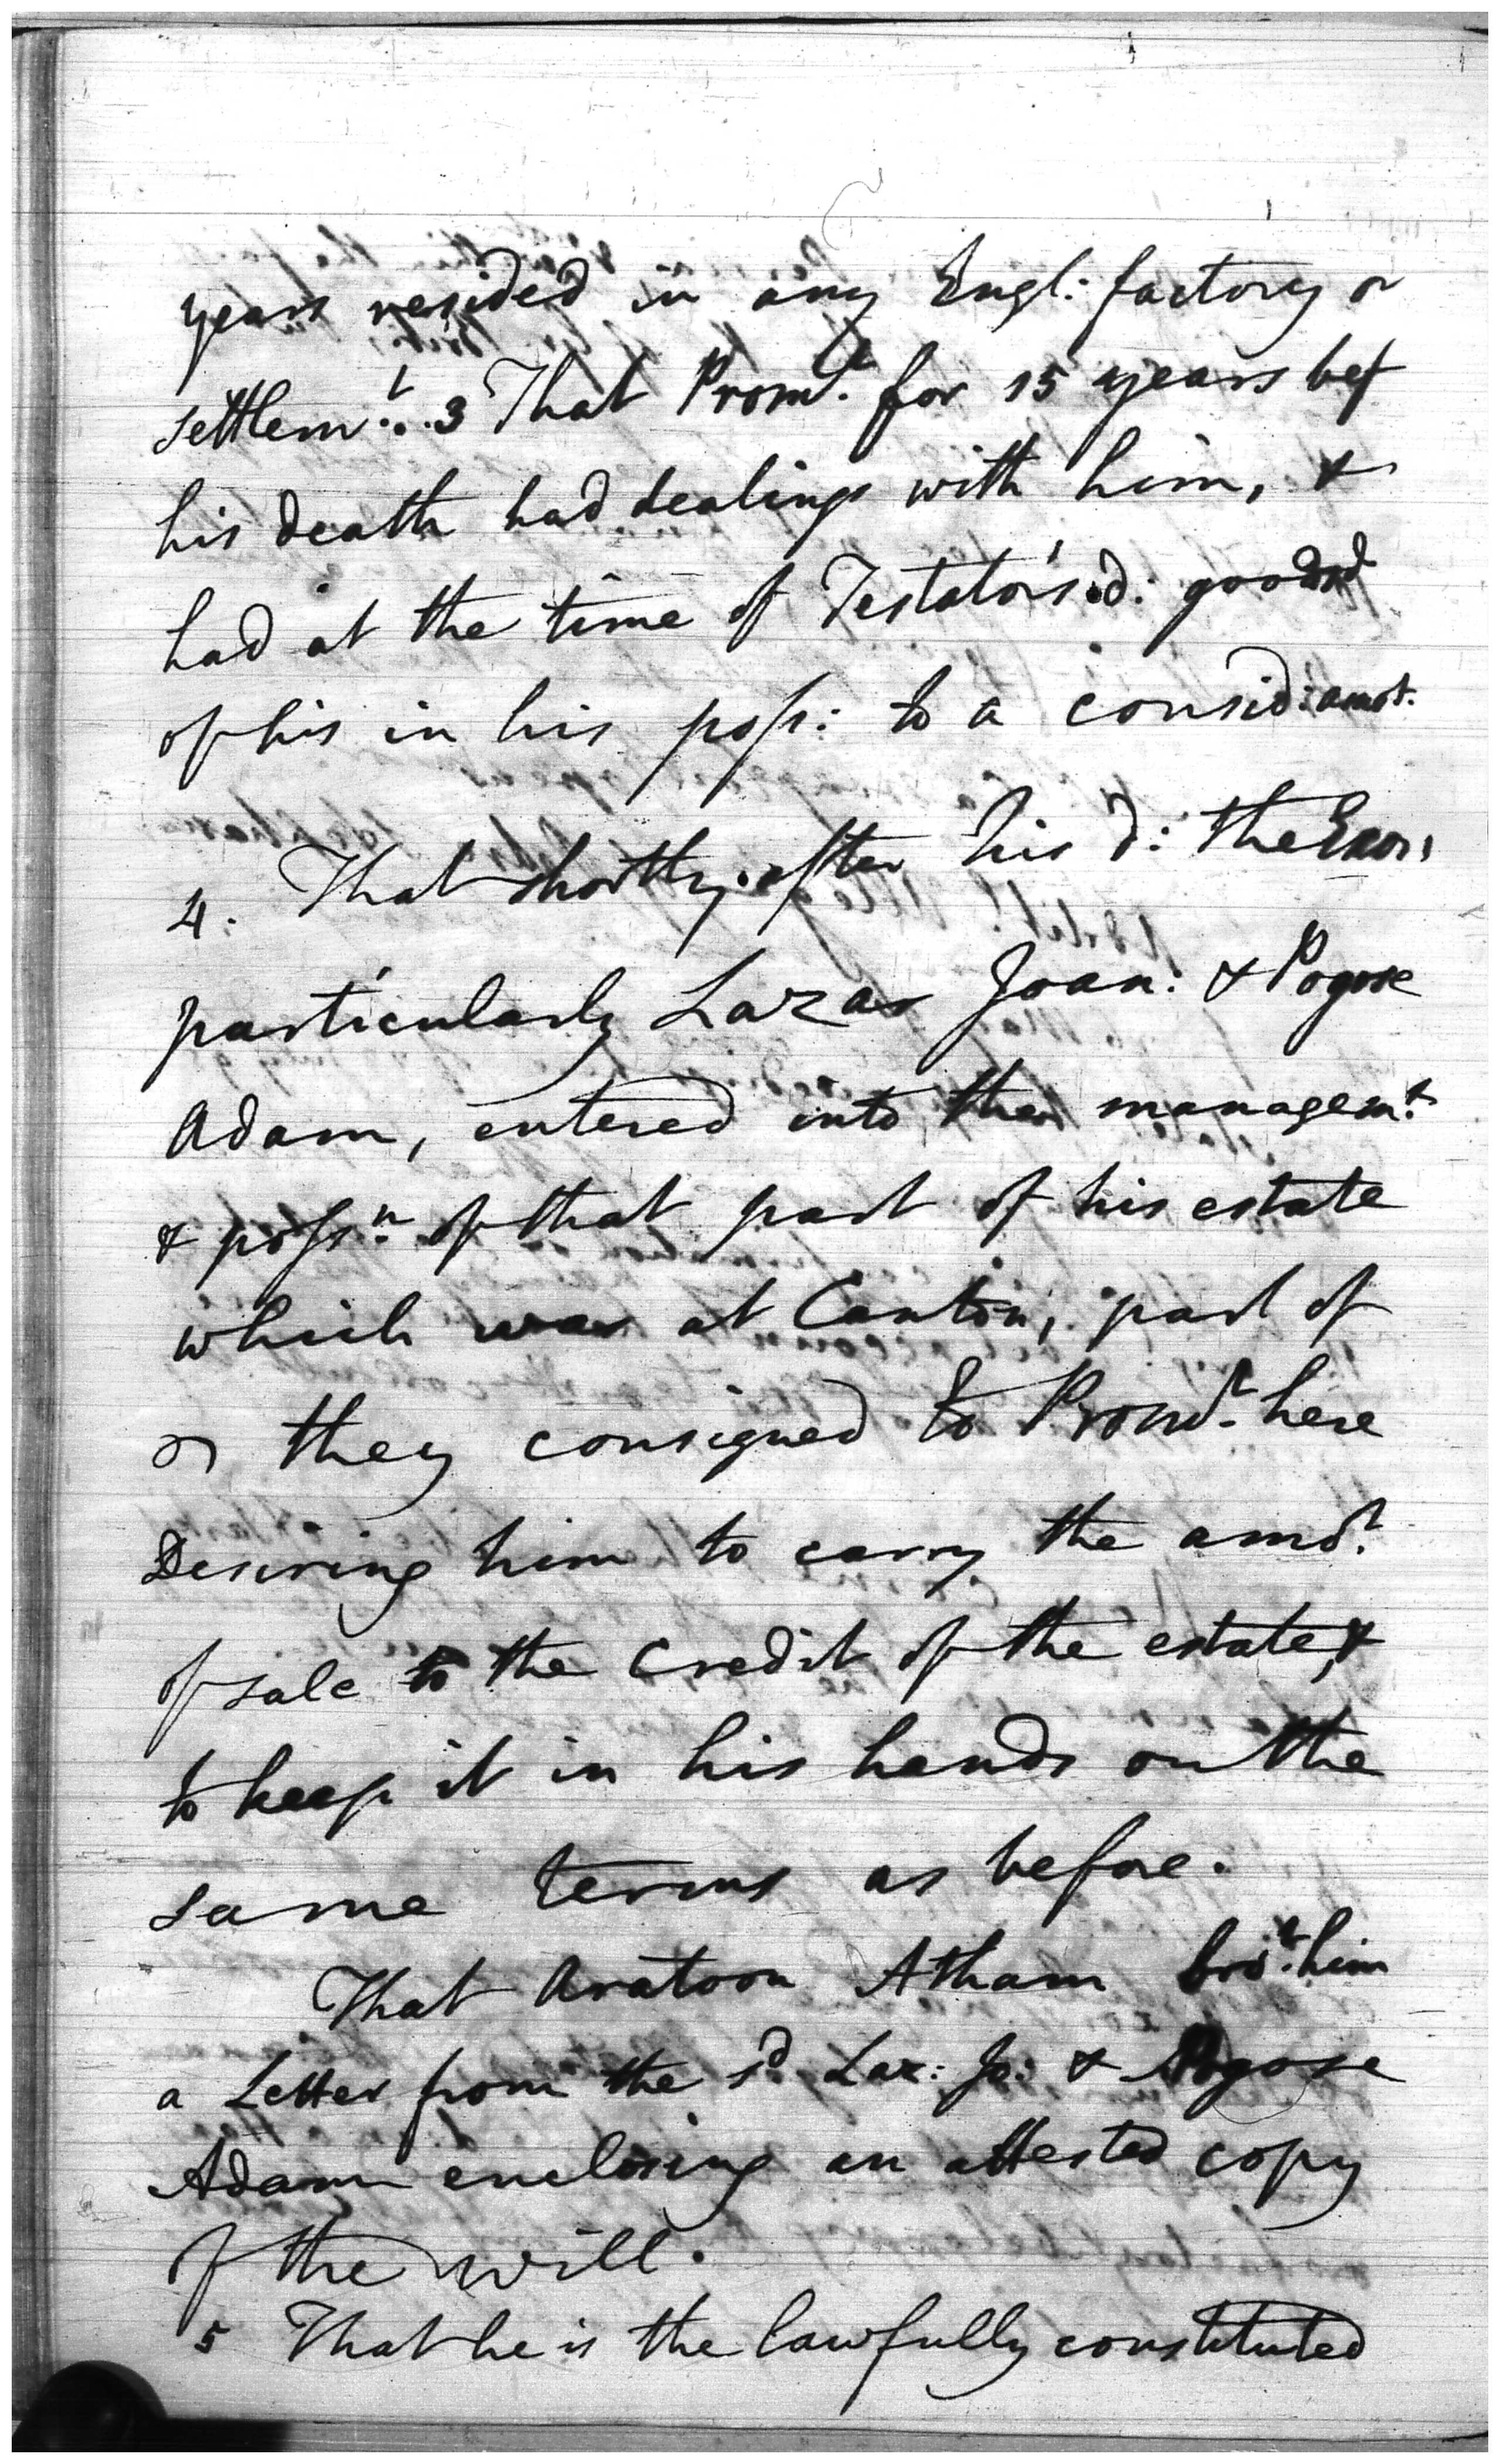 years resided in any Engl: factory or
settlem:t. 3 That Promt. for 15 years bef
his death had dealings with him, &
had at the time of Testator's d: goods
of his in his poss: to a consid: amot.
4. That shortly after his d: the Exors
particularly Lazar Joan: & Pogose
Adam, entered into the managemt.
& possn. of that part of his estate
which was at Canton, part of
they consigned to Promt. here
Desiring him to carry the amot.
of sale to the Credit of the estate, &
to keep it in his hands on the
same terms as before.
That Aratoon Atham brot. him
a Letter from the sd Laz: Jo: & Pogose
Adam enclosing an attested copy
of the will.
5 That he is the lawfully constituted